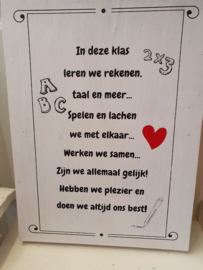 In deze klas
2x3
leren we rekenen,
A
taal en meer...
B C
Spelen en lachen
we met elkaar...
Werken we samen...
Zijn we allemaal gelijk!
Hebben we plezier en
doen we altijd ons best!